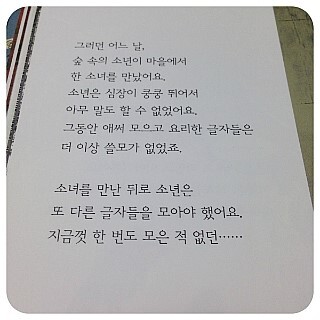 그러던 어느 날,
숲 속의 소년이 마을에서
한 소녀를 만났어요.
소년은 심장이 쿵쿵 뛰어서
아무 말도 할 수 없었어요.
그동안 애써 모으고 요리한 글자들은
더 이상 쓸모가 없었죠.
소녀를 만난 뒤로 소년은
또 다른 글자들을 모아야 했어요.
지금껏 한 번도 모은 적 없던……